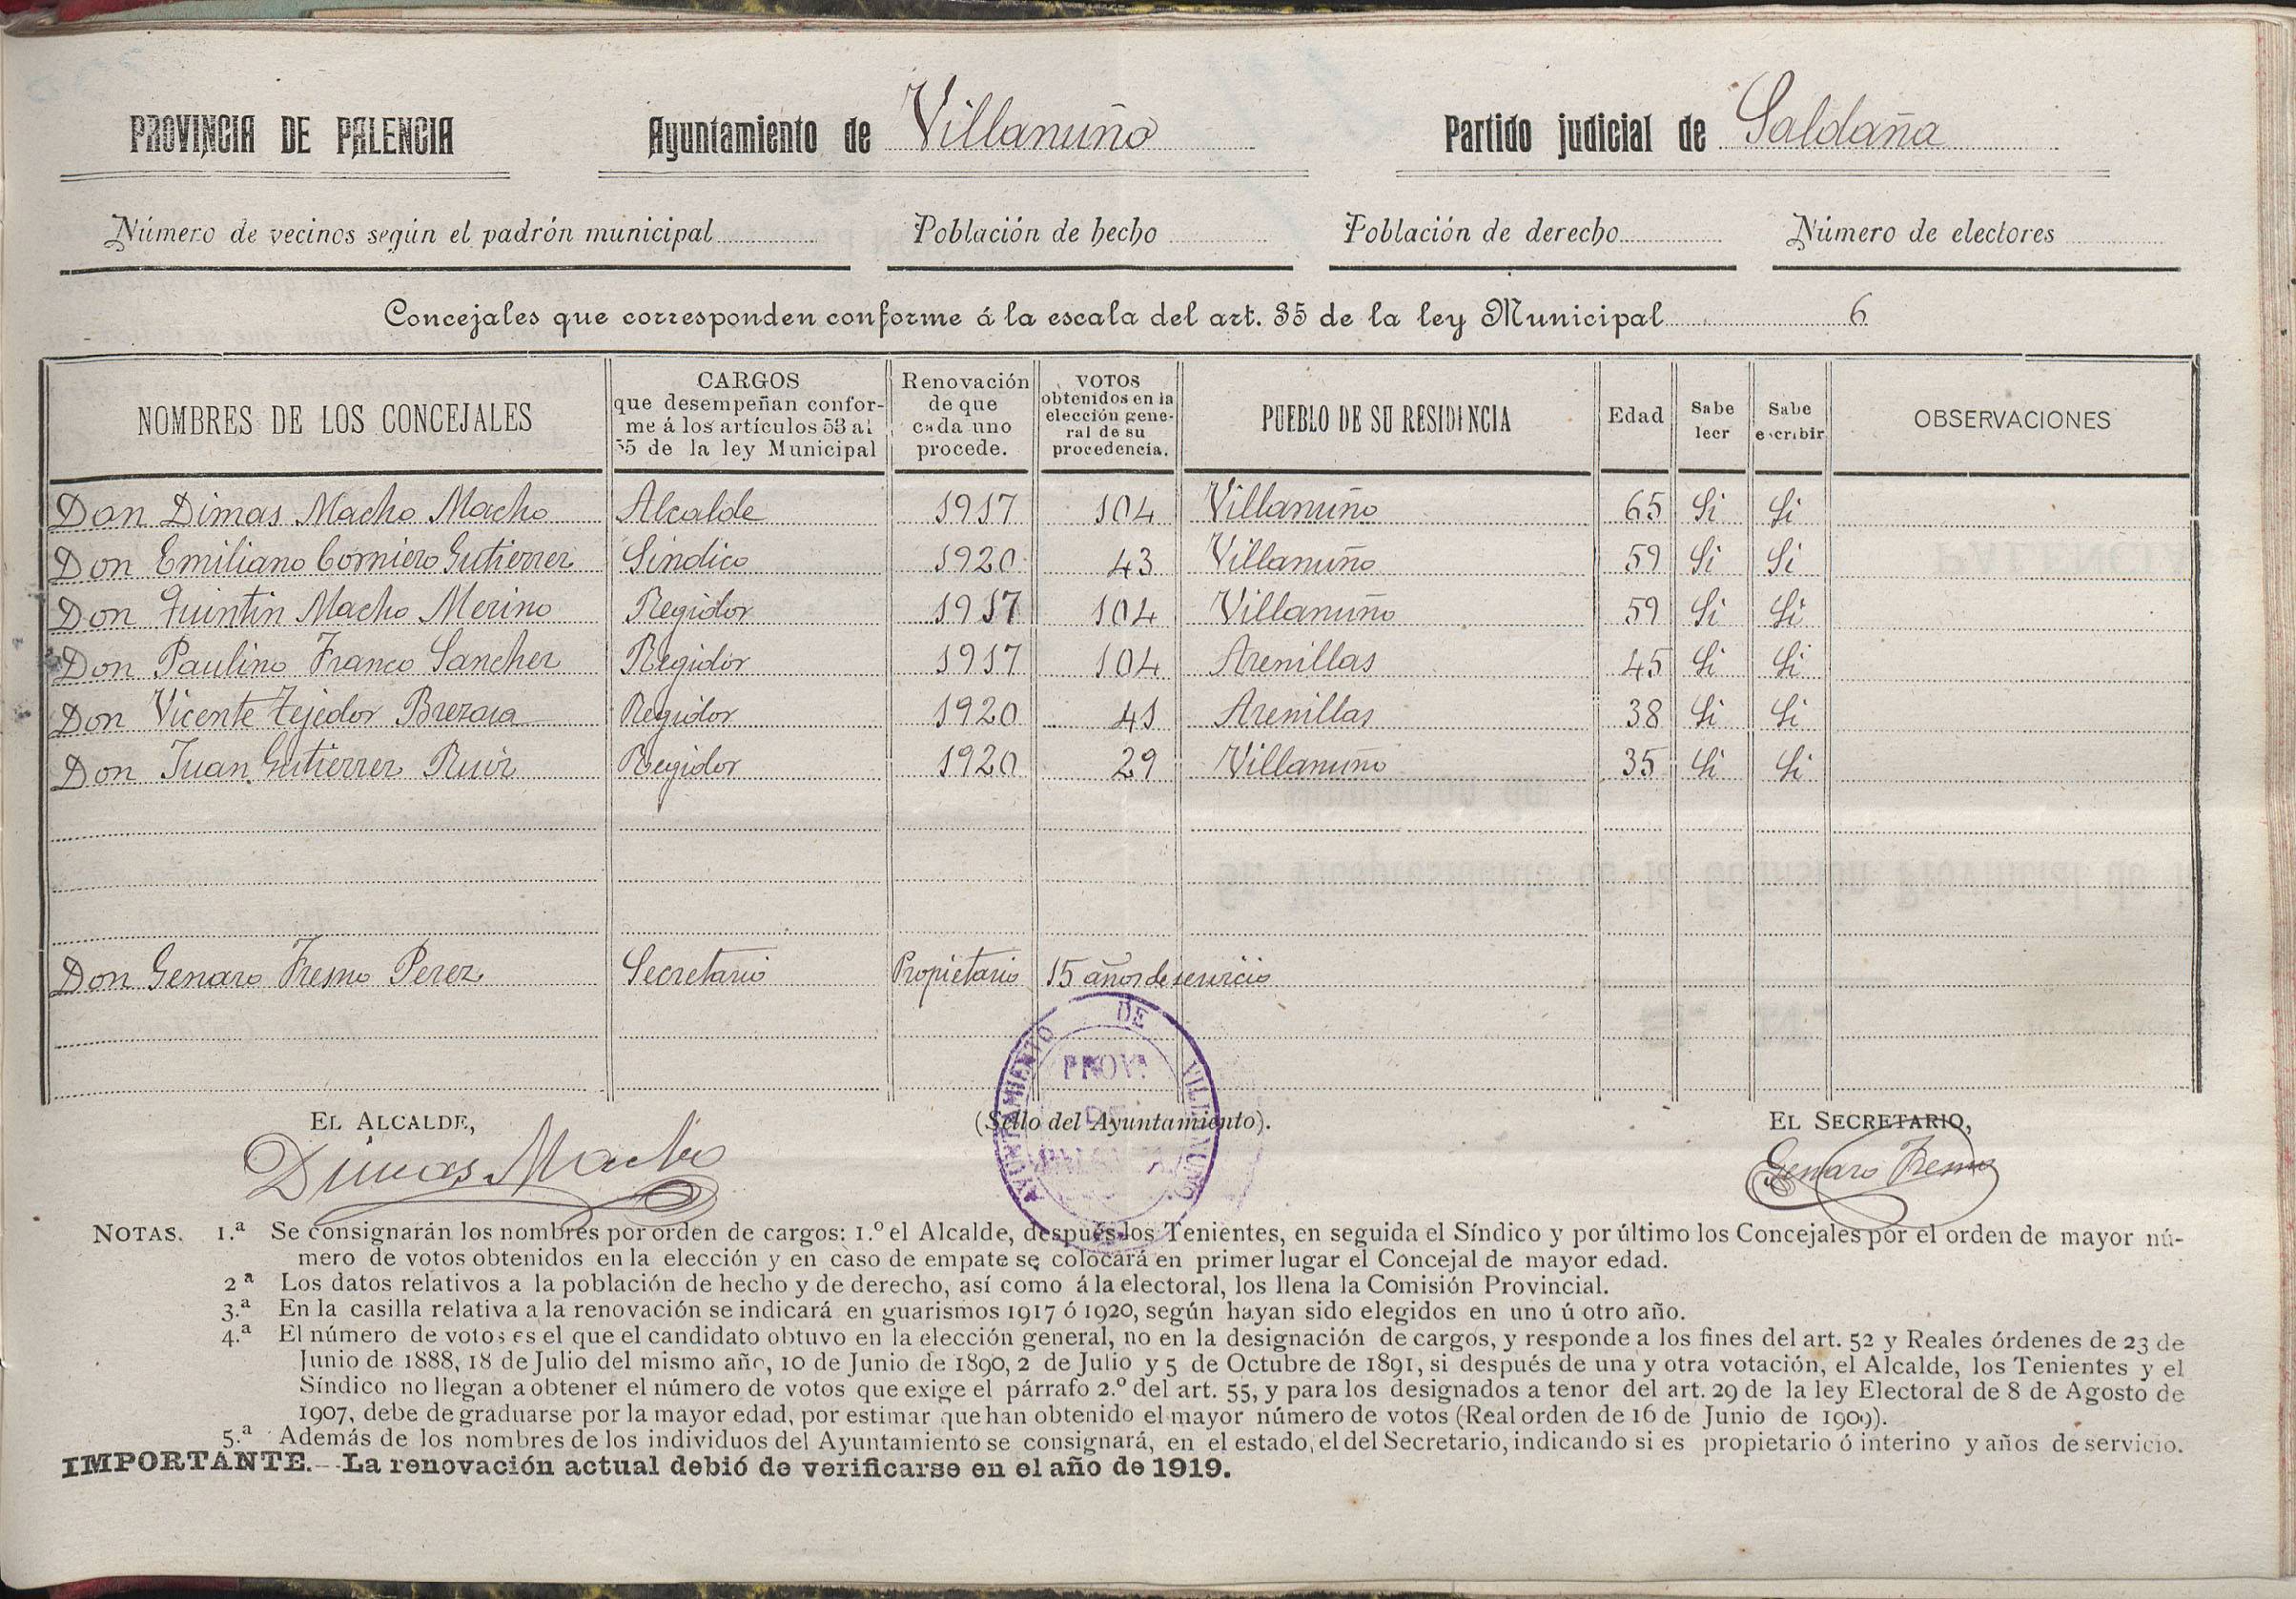 PROVINCIA DE PALENCIA Ayuntamiento de Villanuño Partido judicial de Saldaña
Número de vecinos según el padrón municipal Población de hecho Población de derecho Número de electores
Concejales que corresponden conforme á la escala del art. 35 de la ley Municipal 6
NOMBRES DE LOS CONCEJALES
CARGOS
que desempeñan confor-
me á los artículos 53 al
55 de la ley Municipal
Renovación
de que
cada uno
procede.
VOTOS
obtenidos en la
elección gene-
ral de su
procedencia.
PUEBLO DE SU RESIDENCIA
Edad
Sabe
leer
Sabe
escribir
OBSERVACIONES
Don Dimas Macho Macho Alcalde 1917 104 Villanuño 65 Si Si
Don Emiliano Corniero Gutierrez Sindico 1920 43 Villanuño 59 Si Si
Don Quintin Macho Merino Regidor 1917 104 Villanuño 59 Si Si
Don Paulino Franco Sanchez Regidor 1917 104 Arenillas 45 Si Si
Don Vicente Tejedor Regidor 1920 41 Arenillas 38 Si Si
Don Juan Gutierrez Ruiz Regidor 1920 29 Villanuño 35 Si Si
Don Genaro Fresno Perez Secretario Propietario 15 años de servicio
AYUNTAMIENTO DE VILLANUÑO
PROV.
DE
EL ALCALDE, (Sello del Ayuntamiento). EL SECRETARIO,
Dimas Macho Genaro Fresno
NOTAS. 1.ª Se consignarán los nombres por orden de cargos: 1.º el Alcalde, después los Tenientes, en seguida el Síndico y por último los Concejales por el orden de mayor nú-
mero de votos obtenidos en la elección y en caso de empate se colocará en primer lugar el Concejal de mayor edad.
2ª Los datos relativos a la población de hecho y de derecho, así como á la electoral, los llena la Comisión Provincial.
3.ª En la casilla relativa a la renovación se indicará en guarismos 1917 ó 1920, según hayan sido elegidos en uno ú otro año.
4.ª El número de votos es el que el candidato obtuvo en la elección general, no en la designación de cargos, y responde a los fines del art. 52 y Reales órdenes de 23 de
Junio de 1888, 18 de Julio del mismo año, 10 de Junio de 1890, 2 de Julio y 5 de Octubre de 1891, si después de una y otra votación, el Alcalde, los Tenientes y el
Síndico no llegan a obtener el número de votos que exige el párrafo 2.º del art. 55, y para los designados a tenor del art. 29 de la ley Electoral de 8 de Agosto de
1907, debe de graduarse por la mayor edad, por estimar que han obtenido el mayor número de votos (Real orden de 16 de Junio de 1909).
5.ª Además de los nombres de los individuos del Ayuntamiento se consignará, en el estado, el del Secretario, indicando si es propietario ó interino y años de servicio.
IMPORTANTE.—La renovación actual debió de verificarse en el año de 1919.